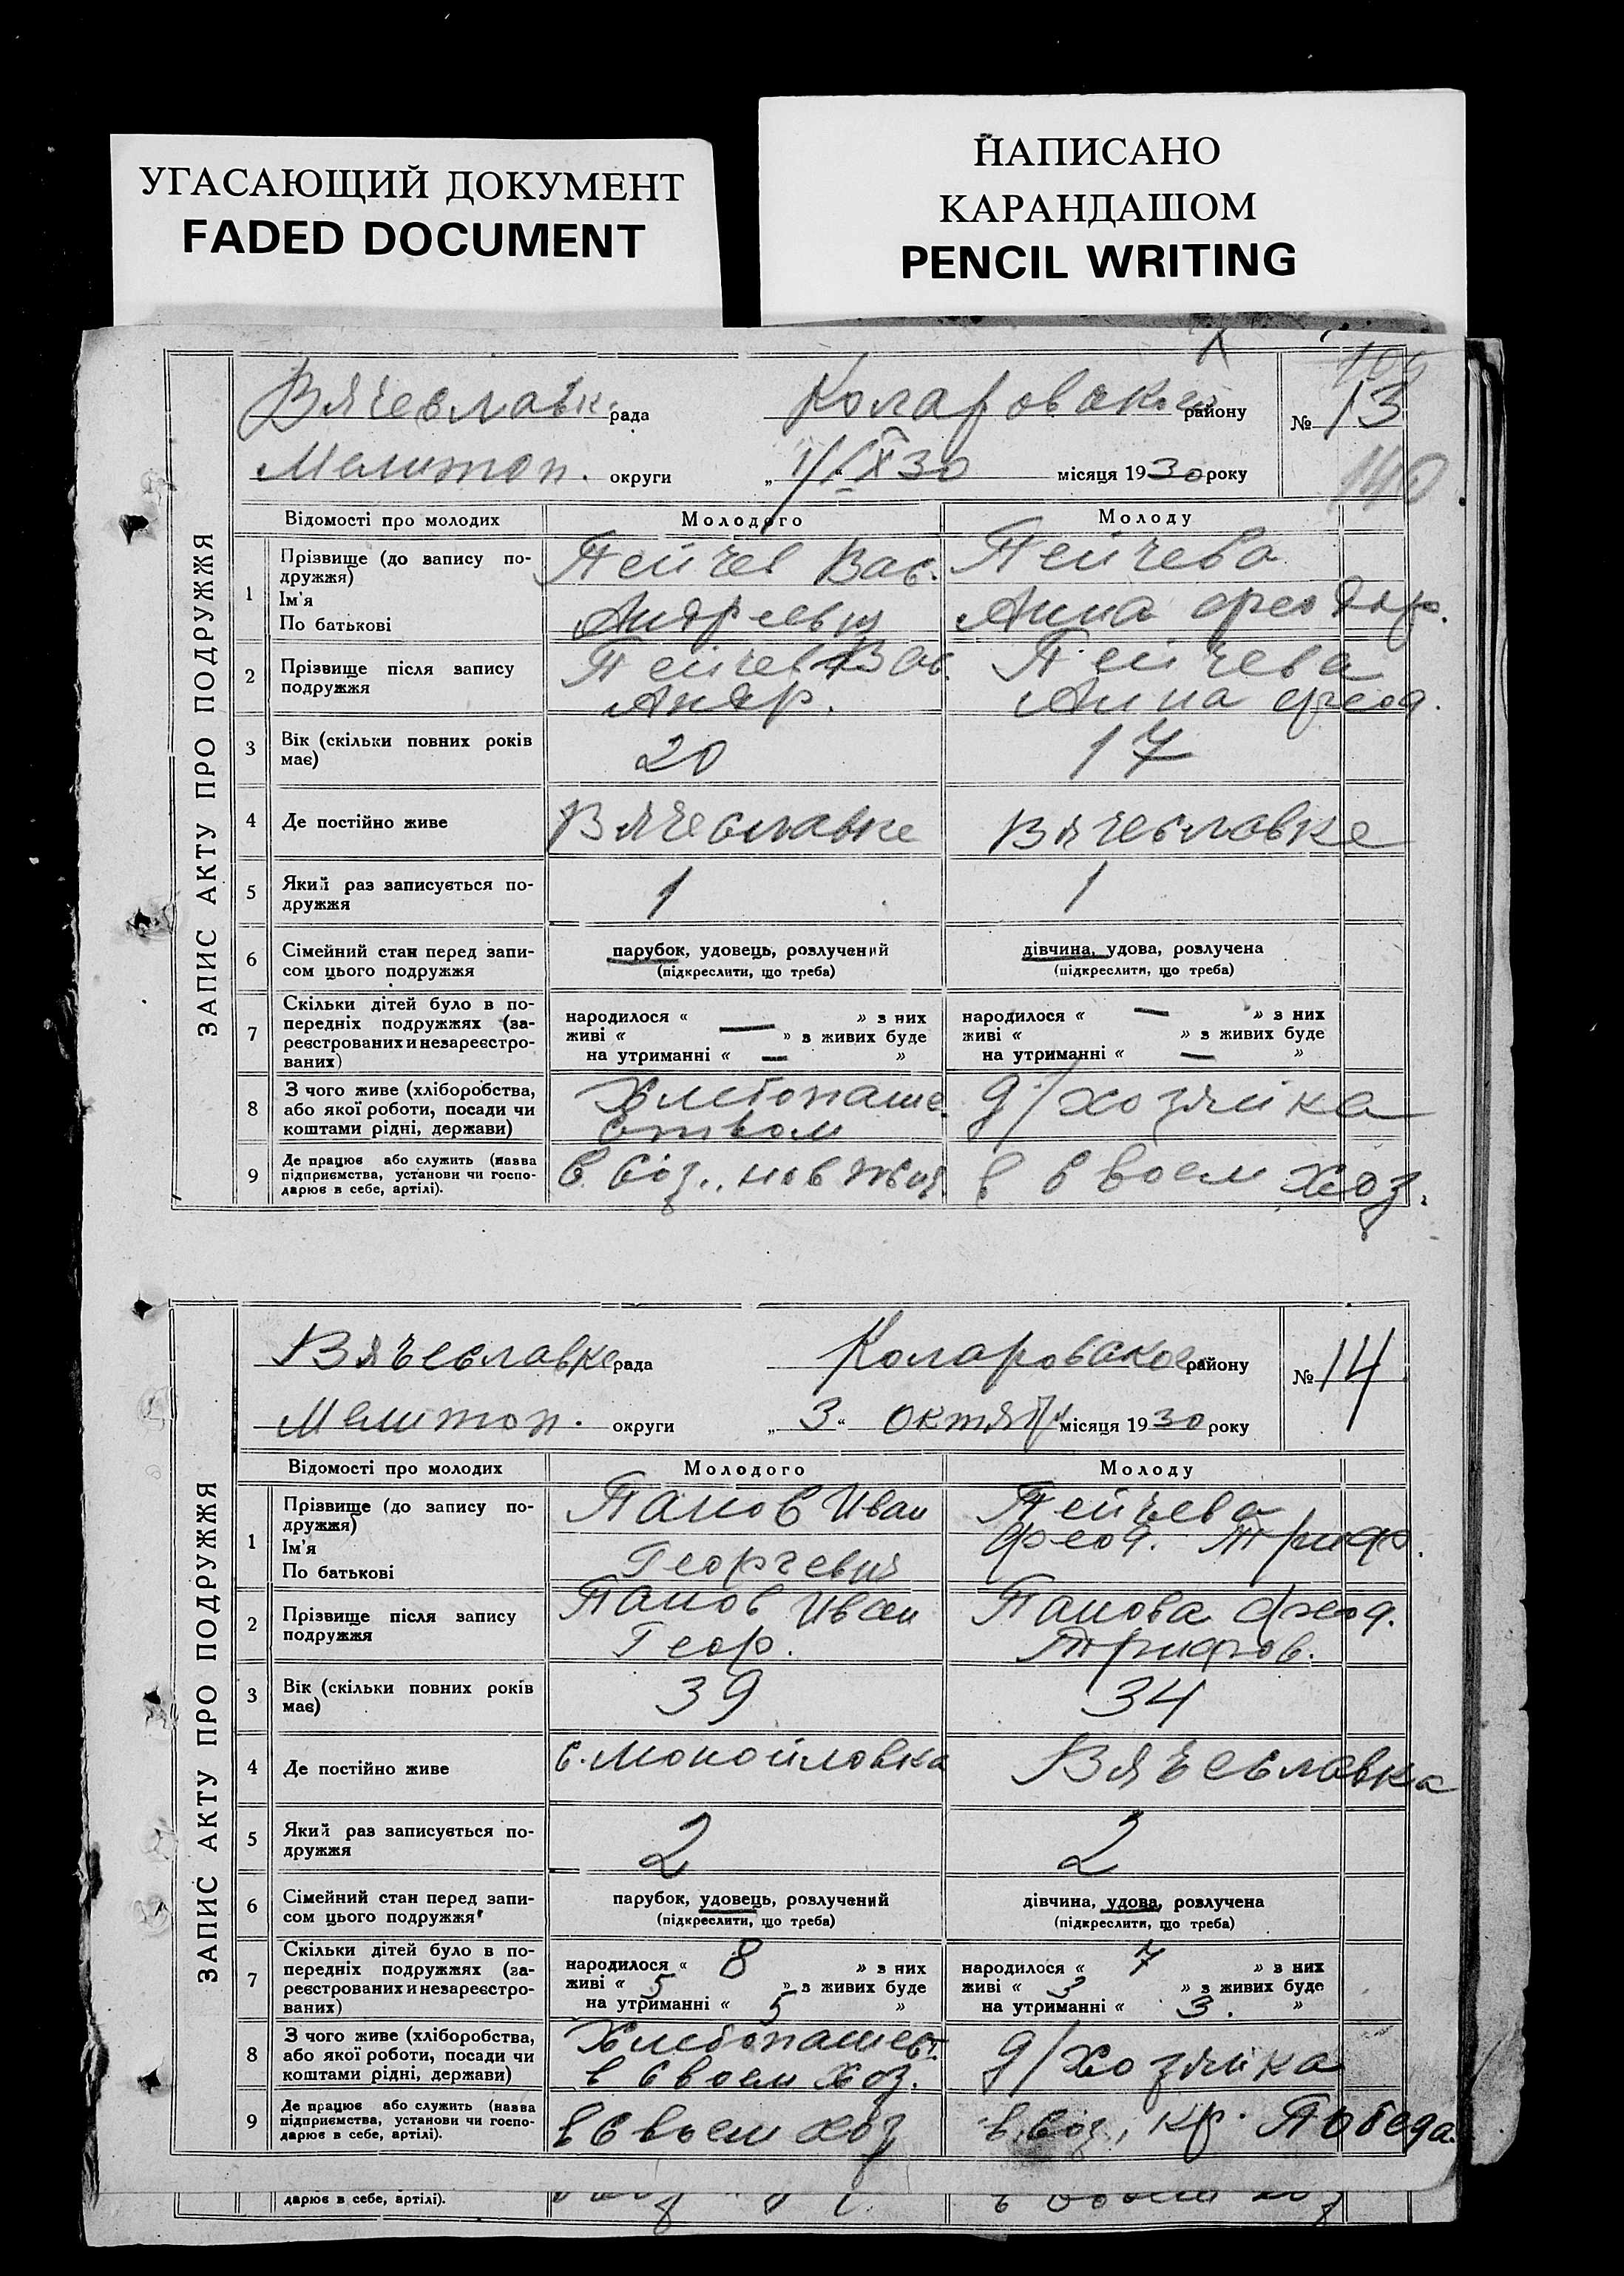 УГАСАЮЩИЙ ДОКУМЕНТ
FADED DOCUMENT
НАПИСАНО
КАРАНДАШОМ
PENCIL WRITING
ЗАПИС АКТУ ПРО ПОДРУЖЖЯ
Вячеславк. рада Коларовского району № 13
Мелитоп. округи 30 місяця 1930 року 140
Відомості про молодих Молодого Молоду
1 Прізвище (до запису по-
дружжя)
Ім'я
По батькові
Пейчев Вас.
Андреевич
Пейчева
Анна Феодор.
2 Прізвище після запису
подружжя
Пейчев Вас.
Андр.
Пейчева
Анна Феод.
3 Вік (скільки повних років
має)
20 17
4 Де постійно живе Вячеславке Вячеславке
5 Який раз записується по-
дружжя
1 1
6 Сімейний стан перед запи-
сом цього подружжя
парубок, удовець, розлучений
(підкреслити, що треба)
дівчина, удова, розлучена
(підкреслити, що треба)
7 Скільки дітей було в по-
передніх подружжях (за-
реєстрованих и незареєстро-
ваних)
народилося « — » з них
живі « — » з живих буде
на утриманні « — »
народилося « — » з них
живі « » з живих буде
на утриманні « — »
8 З чого живе (хліборобства,
або якої роботи, посади чи
коштами рідні, держави)
Хлебопаше
ством
д/хозяйка
9 Де працює або служить (назва
підприємства, установи чи госпо-
дарює в себе, артілі).
в соз. нов жиз.
в своем хоз.
ЗАПИС АКТУ ПРО ПОДРУЖЖЯ
Вячеславке рада Коларовского району № 14
Мелитоп. округи „ 3 “ октябр місяця 1930 року
Відомості про молодих Молодого Молоду
1 Прізвище (до запису по-
дружжя)
Ім'я
По батькові
Панов Иван
Георгевич
Пейчева
Феод. Триф.
2 Прізвище після запису
подружжя
Панов Иван
Геор.
Панова Феод.
Трифов.
3 Вік (скільки повних років
має)
39 34
4 Де постійно живе с. Монойловка Вячеславка
5 Який раз записується по-
дружжя
2 2
6 Сімейний стан перед запи-
сом цього подружжя
парубок, удовець, розлучений
(підкреслити, що треба)
дівчина, удова, розлучена
(підкреслити, що треба)
7 Скільки дітей було в по-
передніх подружжях (за-
реєстрованих и незареєстро-
ваних)
народилося « 8 » з них
живі « 5 » з живих буде
на утриманні « 5 »
народилося « 7 » з них
живі « 3 » з живих буде
на утриманні « 3. »
8 З чого живе (хліборобства,
або якої роботи, посади чи
коштами рідні, держави)
Хлебопашест.
в своем хоз.
д/хозяйка
9 Де працює або служить (назва
підприємства, установи чи госпо-
дарює в себе, артілі).
в своем хоз
в соз, кр. Победа
дарює в себе, артілі).